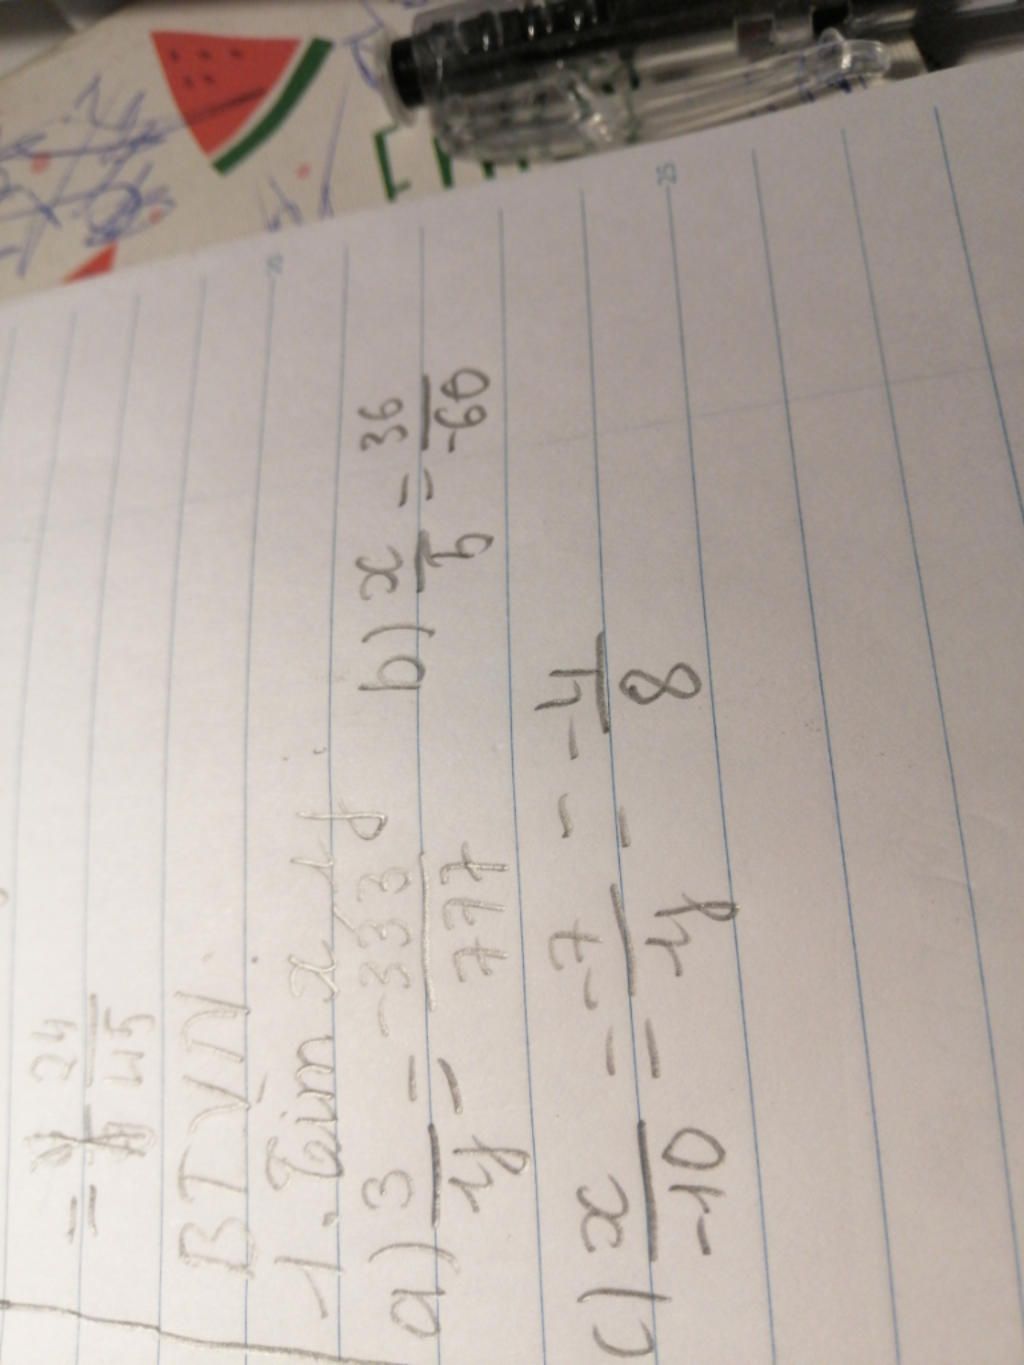 = 24/45
BTVN
1. Tìm x, y
a) 3/y = -333/777 b) x/5 = 36/-60
c) x/-10 = -7/y = -4/8